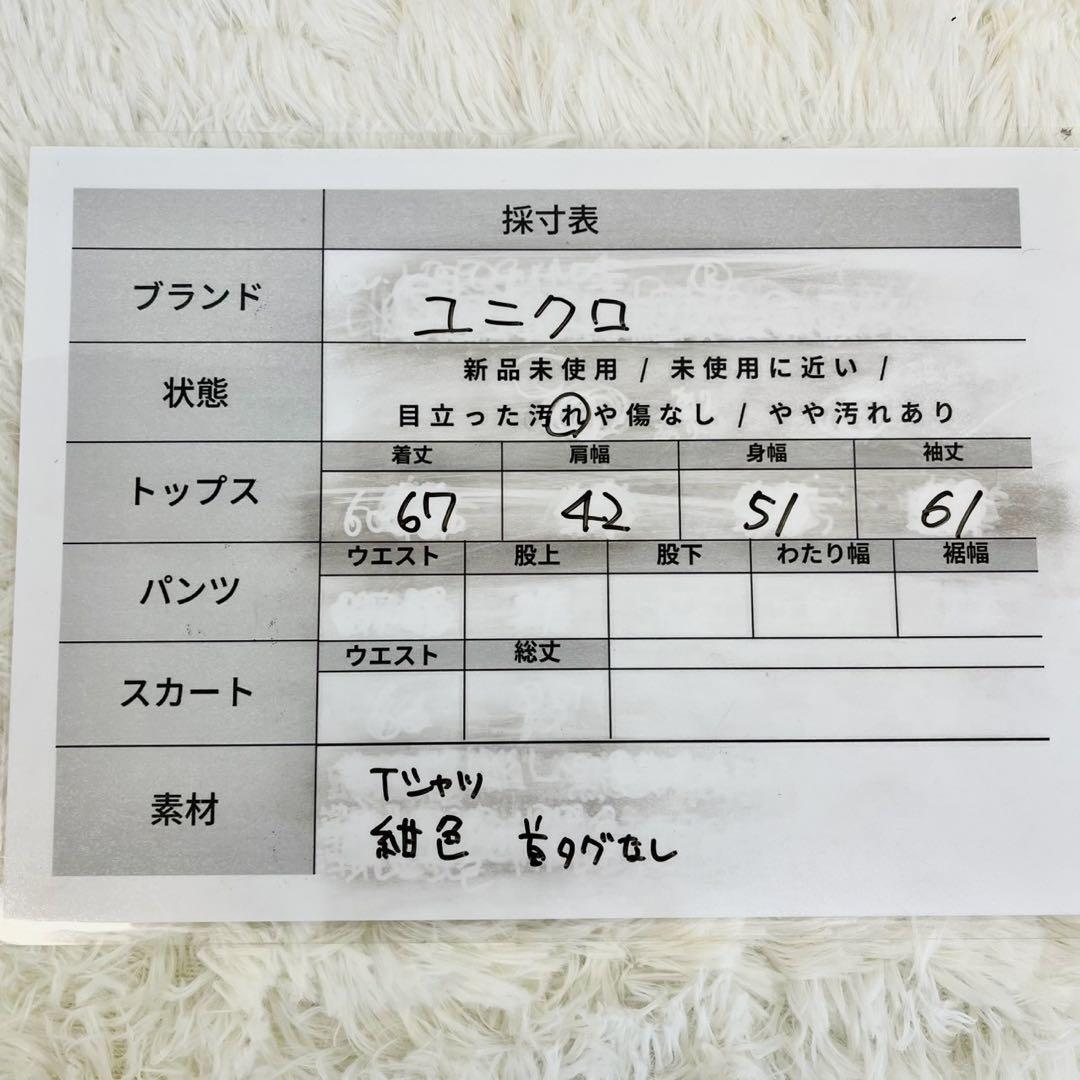 採寸表
ブランド
ユニクロ
状態
新品未使用 / 未使用に近い /
目立った汚れや傷なし / やや汚れあり
トップス
着丈 肩幅 身幅 袖丈
67 42 51 61
パンツ
ウエスト 股上 股下 わたり幅 裾幅
スカート
ウエスト 総丈
素材
Tシャツ
紺色 首タグなし